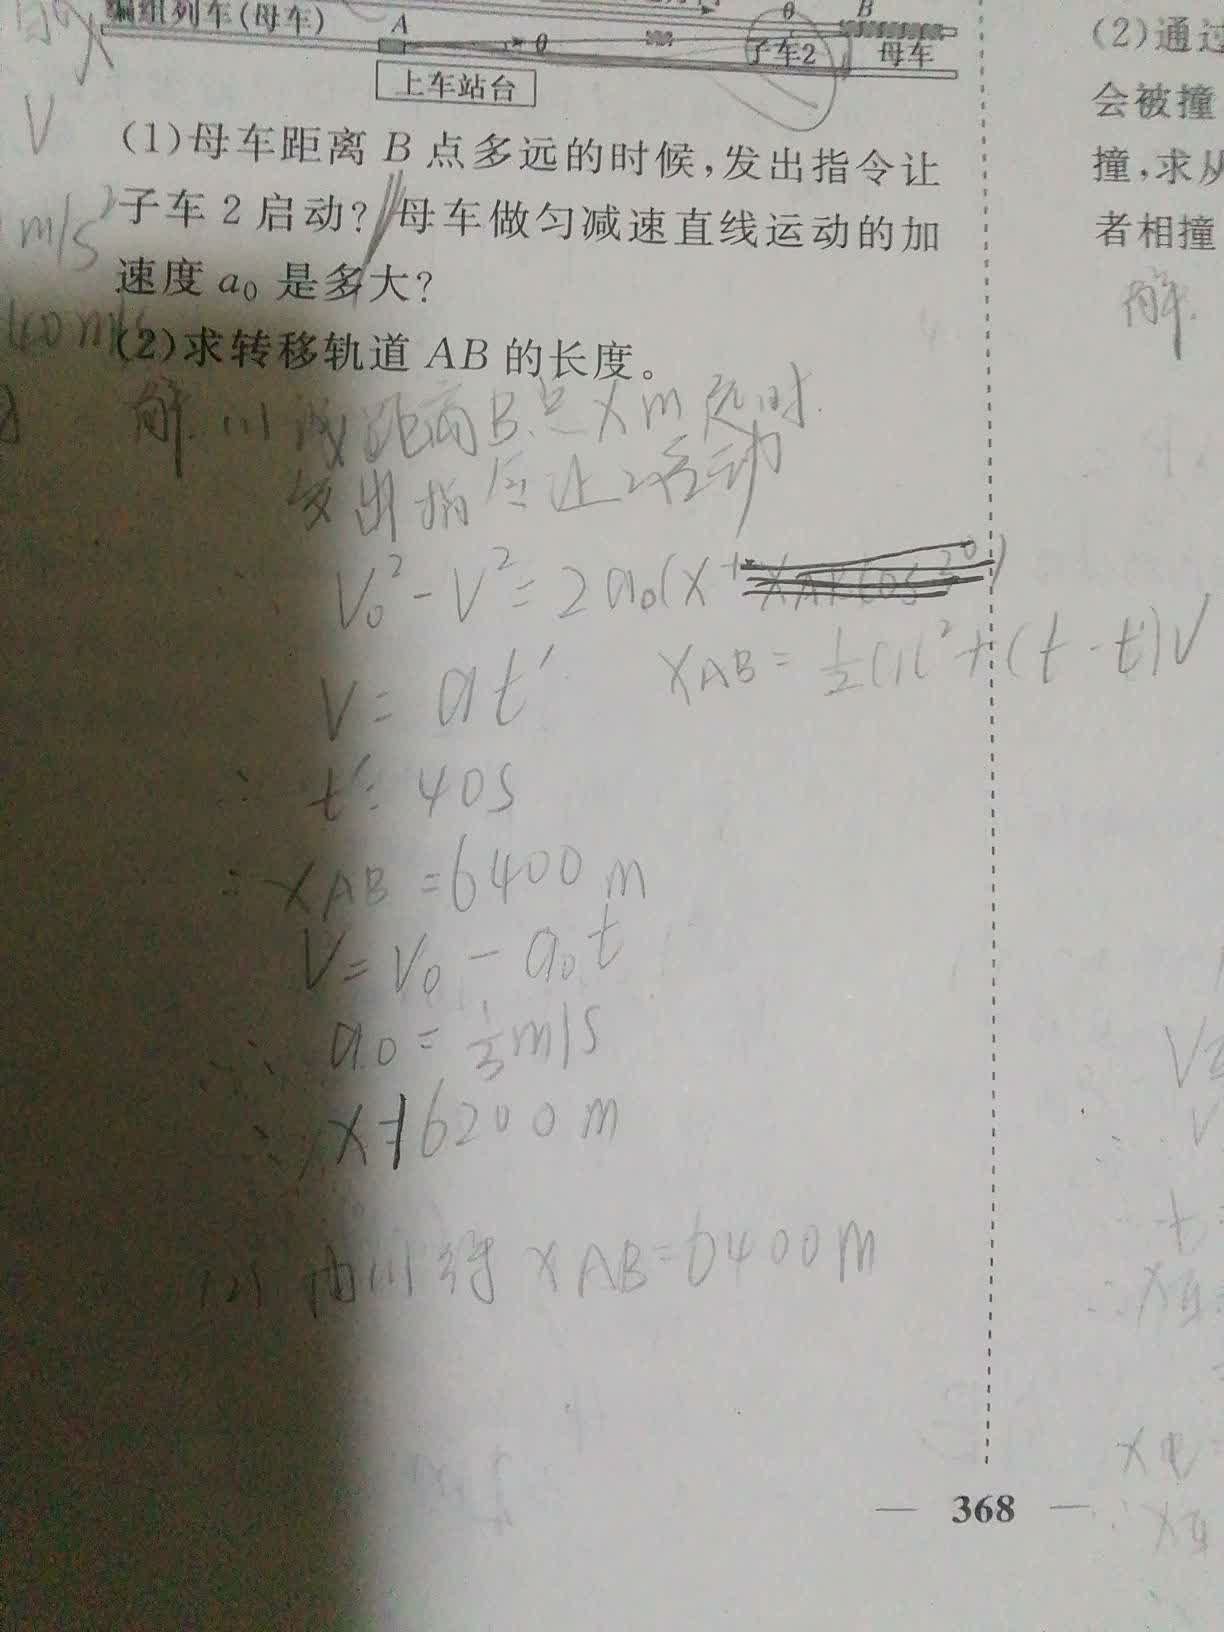 编组列车(母车)
A
θ
θ
B
子车2
母车
上车站台
(1)母车距离 B 点多远的时候,发出指令让
子车 2 启动? 母车做匀减速直线运动的加
速度 a₀ 是多大?
(2)求转移轨道 AB 的长度。
V
m/s²
40m/s
解. (1) 设距离B点 X m 远时.
发出指令让2启动
∴ V₀² - V² = 2a₀(X
V = at′ X_AB = ½at′² + (t - t′)V
∴ t′ = 40s
∴ X_AB = 6400m
V = V₀ - a₀t
∴ a₀ = ⅓m/s
∴ X = 16200m
(2) 由(1)得 X_AB = 6400m
— 368 —
(2)通过
会被撞
撞,求从
者相撞
解.